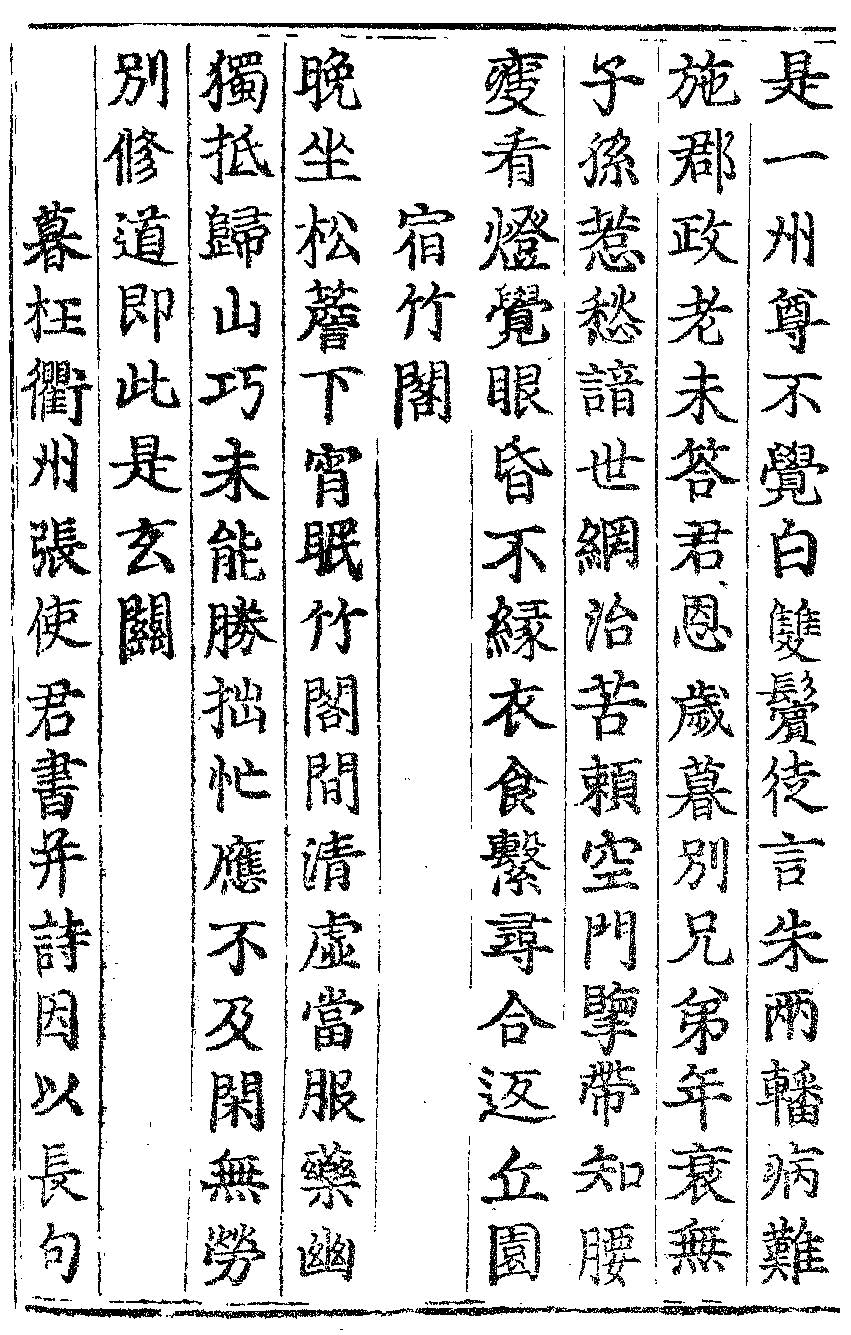 是一州尊不覺白雙鬢徒言朱兩轓病難
施郡政老未答君恩歲暮別兄弟年衰無
子孫惹愁諳世網治苦頼空門擥帶知腰
瘦看燈覺眼昏不緣衣食繫尋合返丘園
宿竹閣
晚坐松簷下宵眠竹閣間清虛當服藥幽
獨抵歸山巧未能勝拙忙應不及閑無勞
別修道即此是玄關
暮枉衢州張使君書并詩因以長句